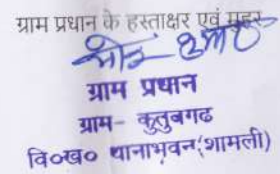 ग्राम प्रधान के हस्ताक्षर एवं मुहर
ग्राम प्रधान
ग्राम- कुतुबगढ
वि०ख० थानाभवन(शामली)